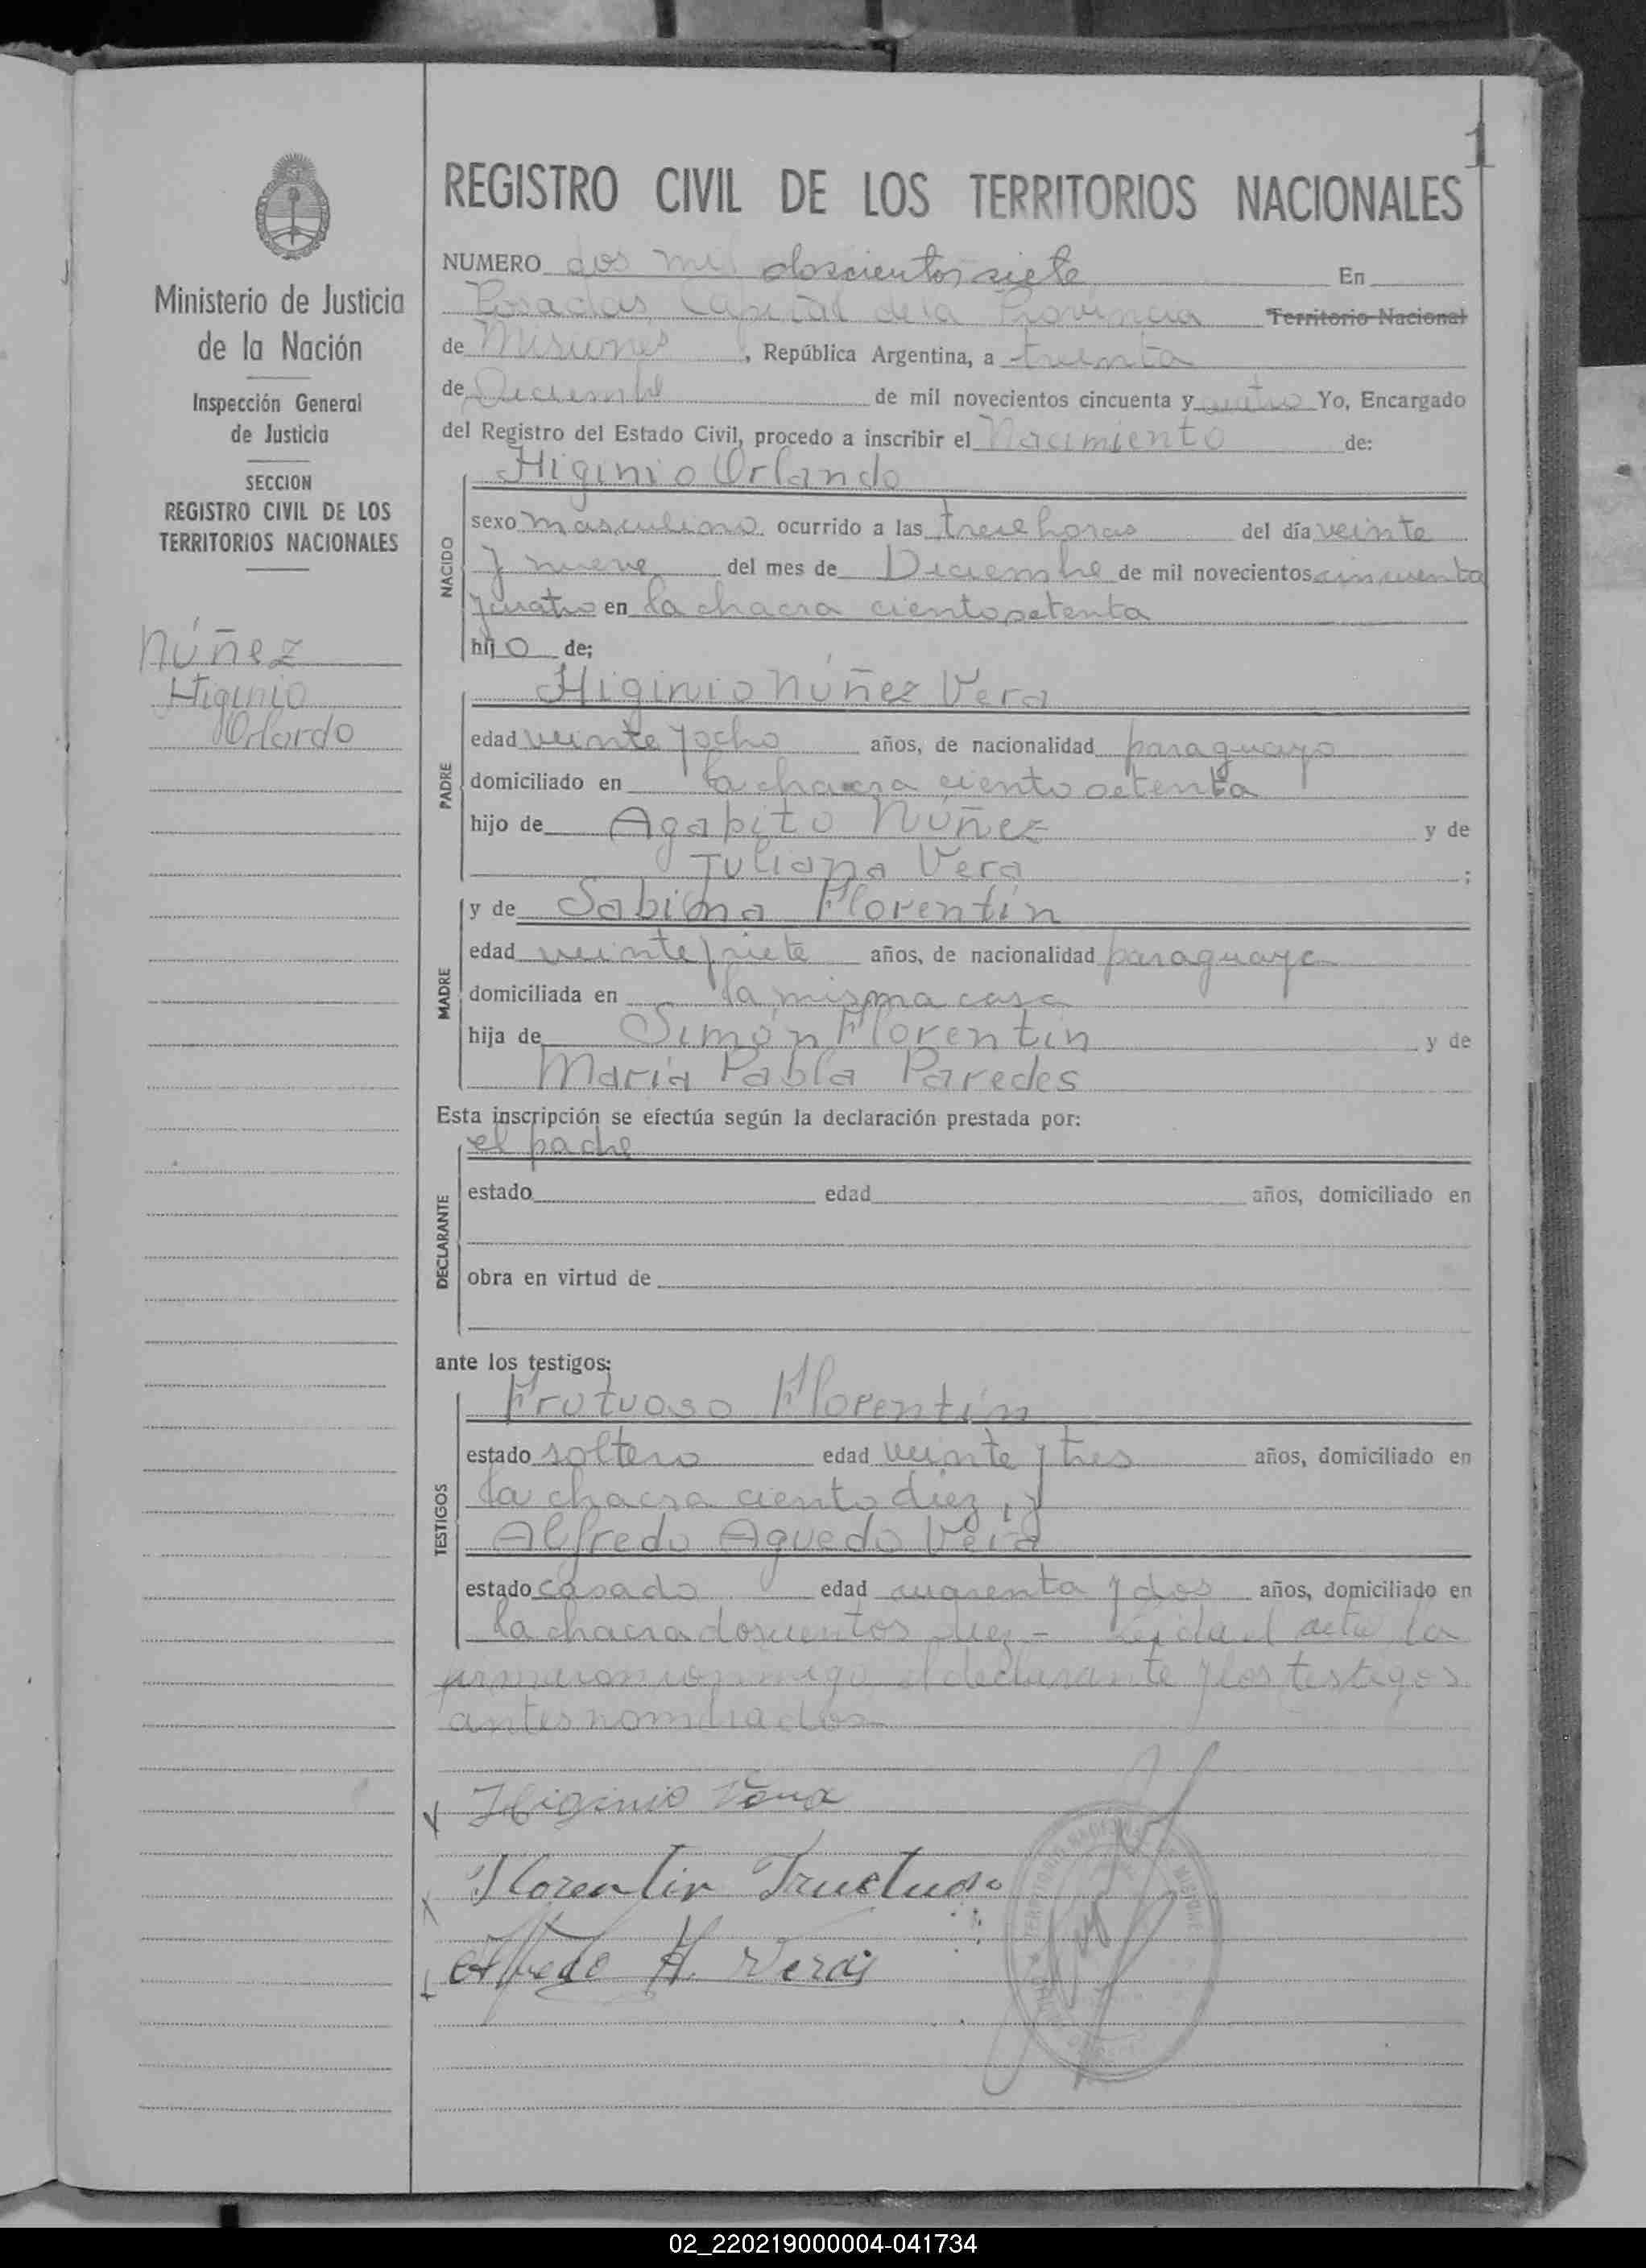 1
REGISTRO CIVIL DE LOS TERRITORIOS NACIONALES
Ministerio de Justicia
de la Nación
Inspección General
de Justicia
SECCION
REGISTRO CIVIL DE LOS
TERRITORIOS NACIONALES
Núñez
Higinio
Orlando
NUMERO dos mil doscientos siete En
Posadas Capital de la Provincia Territorio Nacional
de Misiones, República Argentina, a treinta
de Diciembre de mil novecientos cincuenta y cuatro Yo, Encargado
del Registro del Estado Civil, procedo a inscribir el Nacimiento de:
NACIDO
Higinio Orlando
sexo masculino ocurrido a las trece horas del día veinte
y nueve del mes de Diciembre de mil novecientos cincuenta
y cuatro en la chacra ciento setenta
hijo de;
PADRE
Higinio Núñez Vera
edad veinte y ocho años, de nacionalidad paraguayo
domiciliado en la chacra ciento setenta
hijo de Agapito Núñez y de
Juliana Vera ;
MADRE
y de Sabina Florentín
edad veinte y siete años, de nacionalidad paraguaya
domiciliada en la misma casa
hija de Simón Florentín y de
María Pabla Paredes
Esta inscripción se efectúa según la declaración prestada por:
DECLARANTE
el padre
estado edad años, domiciliado en
obra en virtud de
ante los testigos:
TESTIGOS
Frutuoso Florentín
estado soltero edad veinte y tres años, domiciliado en
la chacra ciento diez, y
Alfredo Aguedo Vera
estado casado edad cuarenta y dos años, domiciliado en
la chacra doscientos diez - Leída el acta la
firmaron conmigo el declarante y los testigos
antes nombrados
Higinio Vera
Florentin Fructuoso
Alfredo A. Vera
02_220219000004-041734